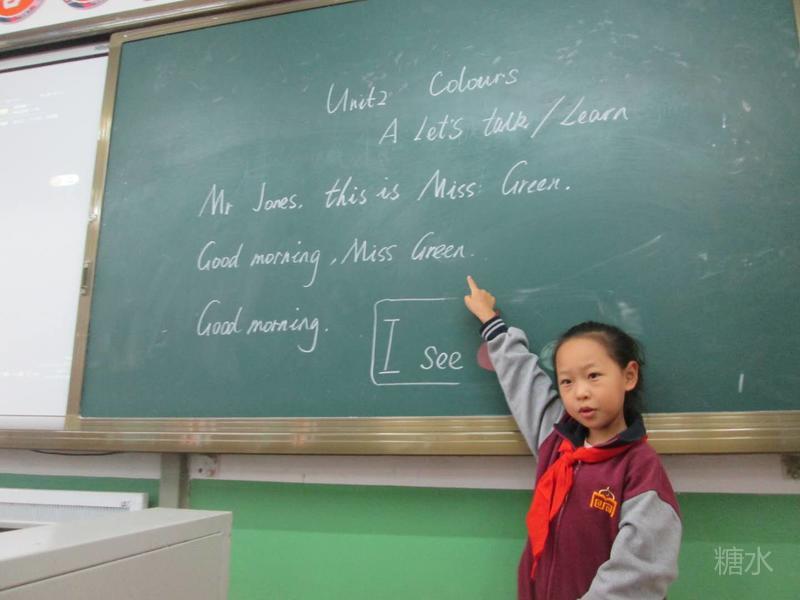 Unit2 Colours
A Let's talk/Learn
Mr Jones, this is Miss Green.
Good morning, Miss Green.
Good morning.
I see
糖水